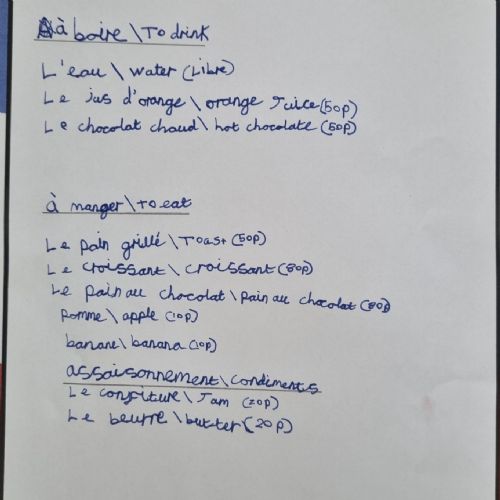 à boire \ To drink
L'eau \ water (Libre)
Le jus d'orange \ orange Juice (50p)
Le chocolat chaud \ hot chocolate (50p)
à manger \ To eat
Le pain grillé \ Toast (50p)
Le croissant \ croissant (80p)
Le pain au chocolat \ pain au chocolat (80p)
pomme \ apple (10p)
banane \ banana (10p)
assaisonnement \ condiments
Le confiture \ Jam (20p)
Le beurre \ butter (20p)